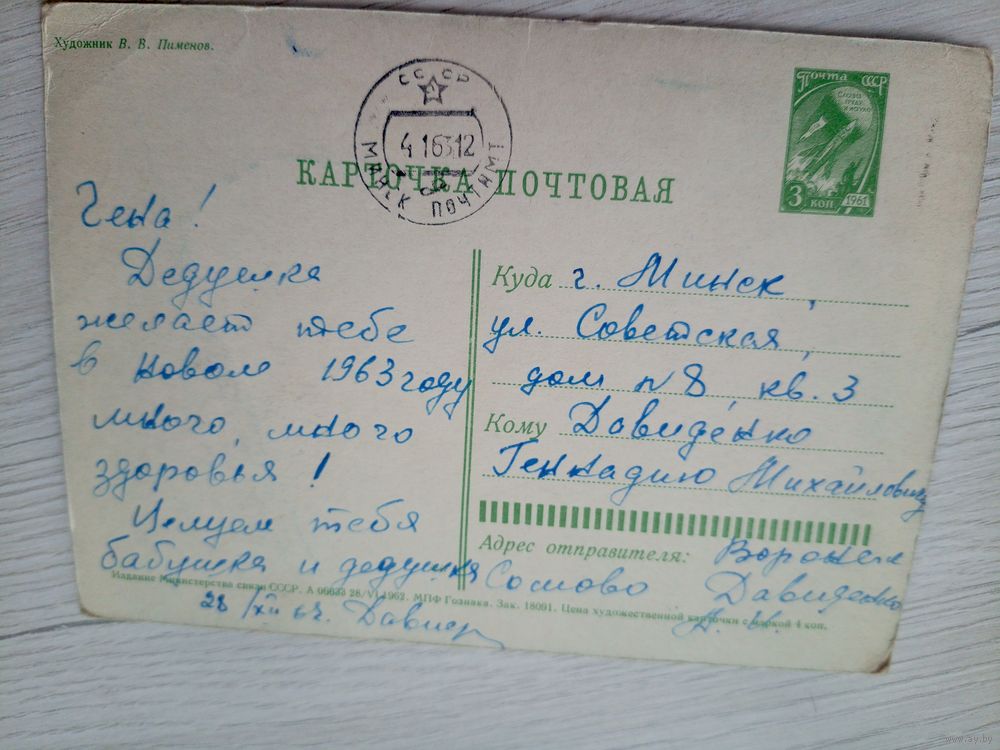 Художник В. В. Пименов.
СССР
4 1 63 12
МИНСК ПОЧТАМТ
Почта СССР
СЛАВА ТРУДУ И НАУКЕ
3 КОП
1961
КАРТОЧКА ПОЧТОВАЯ
Гена!
Дедушка
желает тебе
в новом 1963 году
много, много
здоровья!
Целуем тебя
бабушка и дедушка
28/XII 62. Давид
Куда г. Минск,
ул. Советская,
дом № 8, кв. 3
Кому Давиденко
Геннадию Михайловичу
Адрес отправителя: Воронеж
Сомово Давиденко
Издание Министерства связи СССР. А 06633 28/VI 1962. МПФ Гознака. Зак. 18091. Цена художественной карточки с маркой 4 коп.
www.ay.by